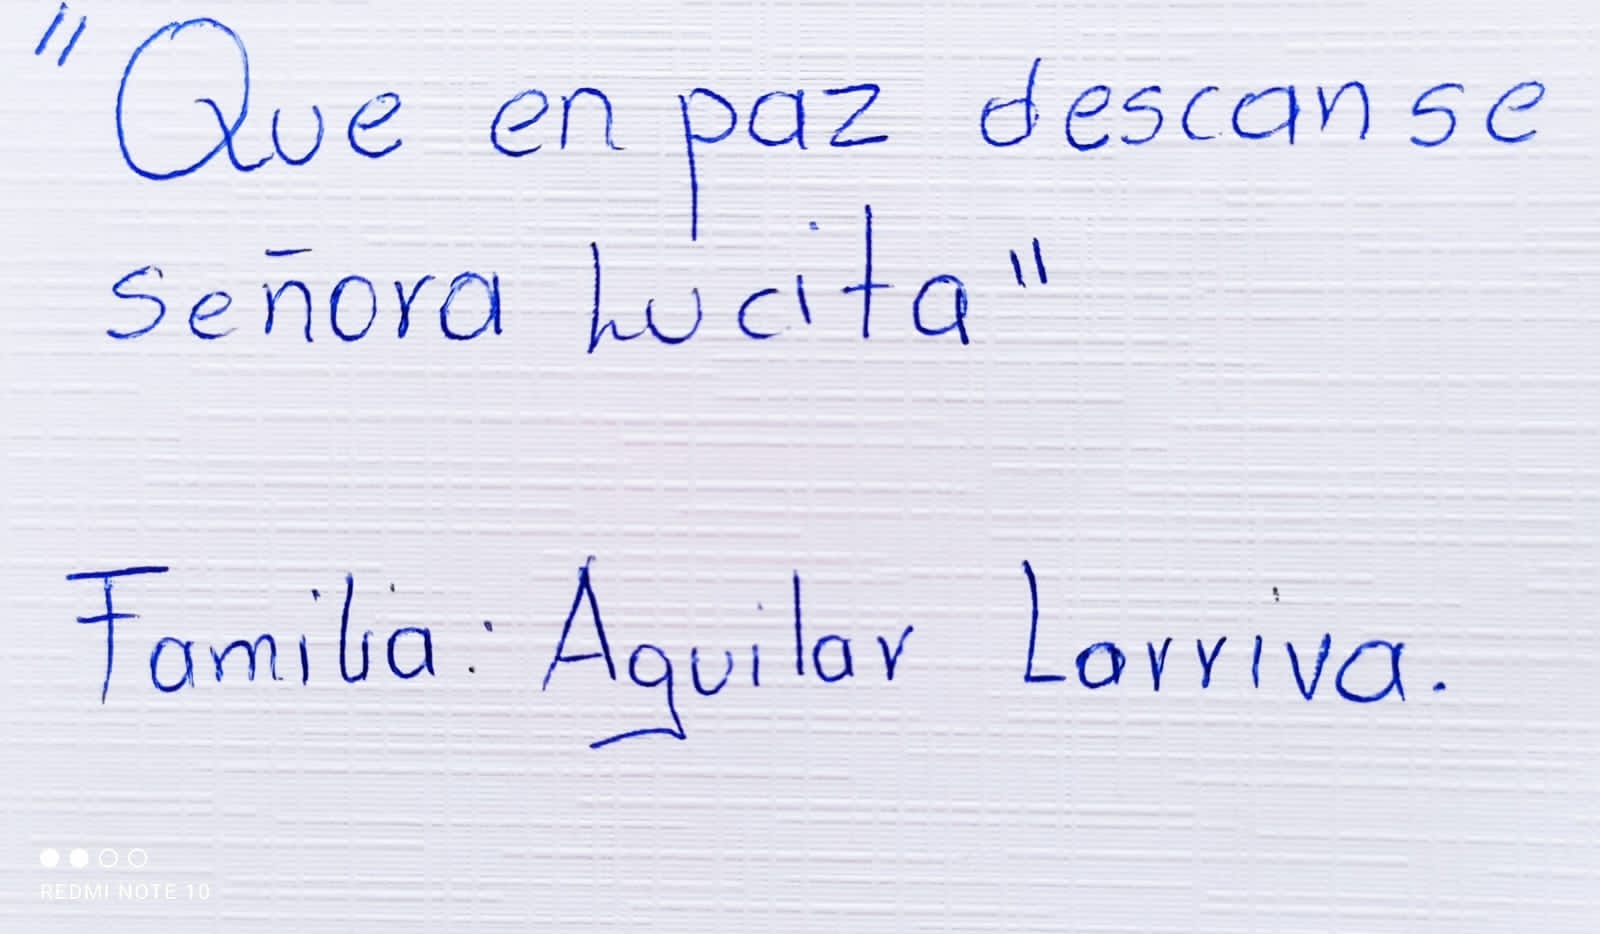 "Que en paz descanse
señora Lucita"
Familia: Aguilar Larriva.
REDMI NOTE 10